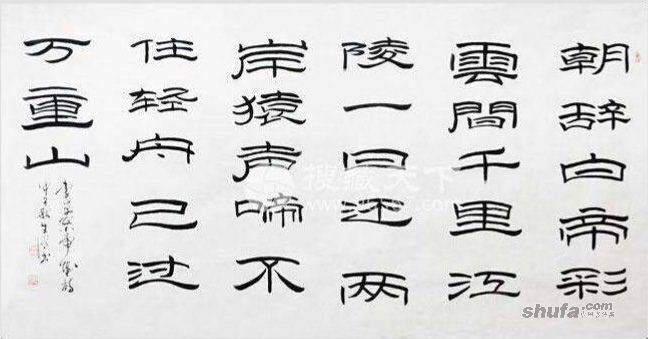 朝辞白帝彩
雲間千里江
陵一日还两
岸猿声啼不
住轻舟已过
万重山
搜藏天下
shufa.com